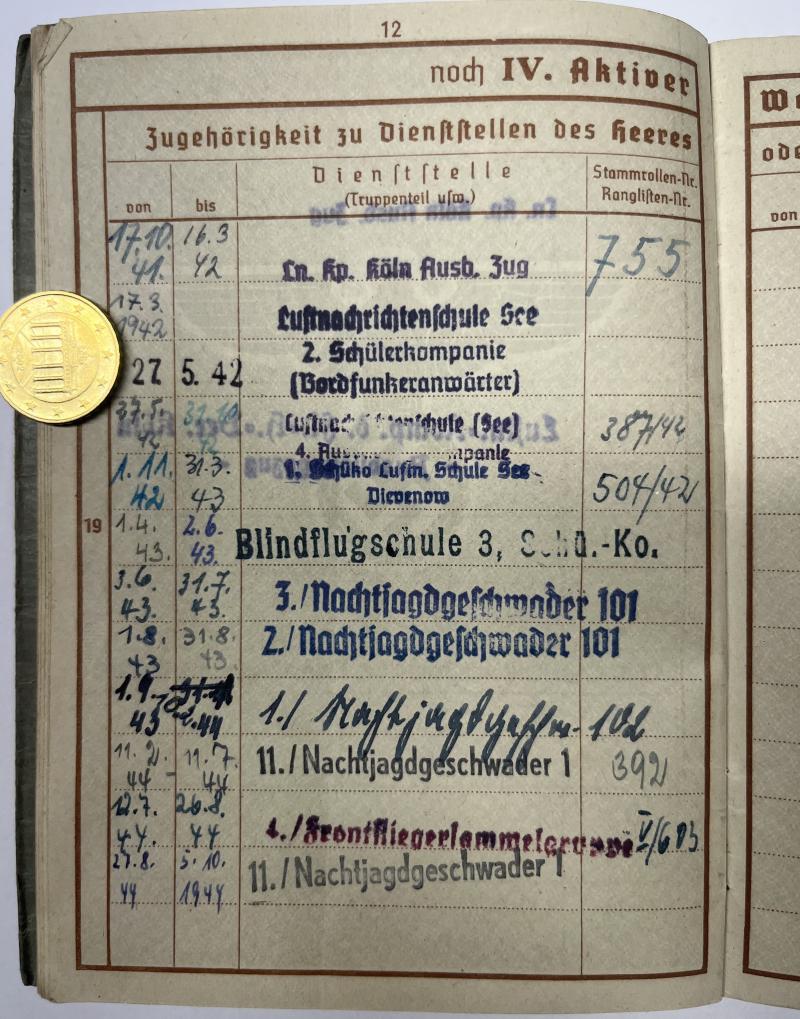 12
noch IV. Aktiver
We
Zugehörigkeit zu Dienststellen des Heeres
ode
von bis Dienststelle (Truppenteil usw.) Stammrollen-Nr. Ranglisten-Nr.
von
17.10. 41. 16.3 42 Ln. Kp. Köln Ausb. Zug 755
17.3. 1942 Luftnachrichtenschule See
27 5. 42 2. Schülerkompanie
(Bordfunkeranwärter)
27.5. 42 31.10 42 Luftnach tenschule (See) 387/42
4. Aus mpanie
1.11. 42 31.3. 43 1. Schüko Luftn. Schule See 504/42
Dievenow
19 1.4. 43. 2.6. 43. Blindflugschule 3, Schü.-Ko.
3.6. 43. 31.7. 43. 3./Nachtjagdgeschwader 101
1.8. 43 31.8. 43. 2./Nachtjagdgeschwader 101
1.9. 43 10.2.44 1./ Nachtjagdgeschw. 102
11.2. 44 - 11.7. 44 11./Nachtjagdgeschwader 1 392
12.7. 44. 26.8. 44 4./Frontfliegersammelgruppe V/603
27.8. 44 5.10. 1944 11./Nachtjagdgeschwader 1